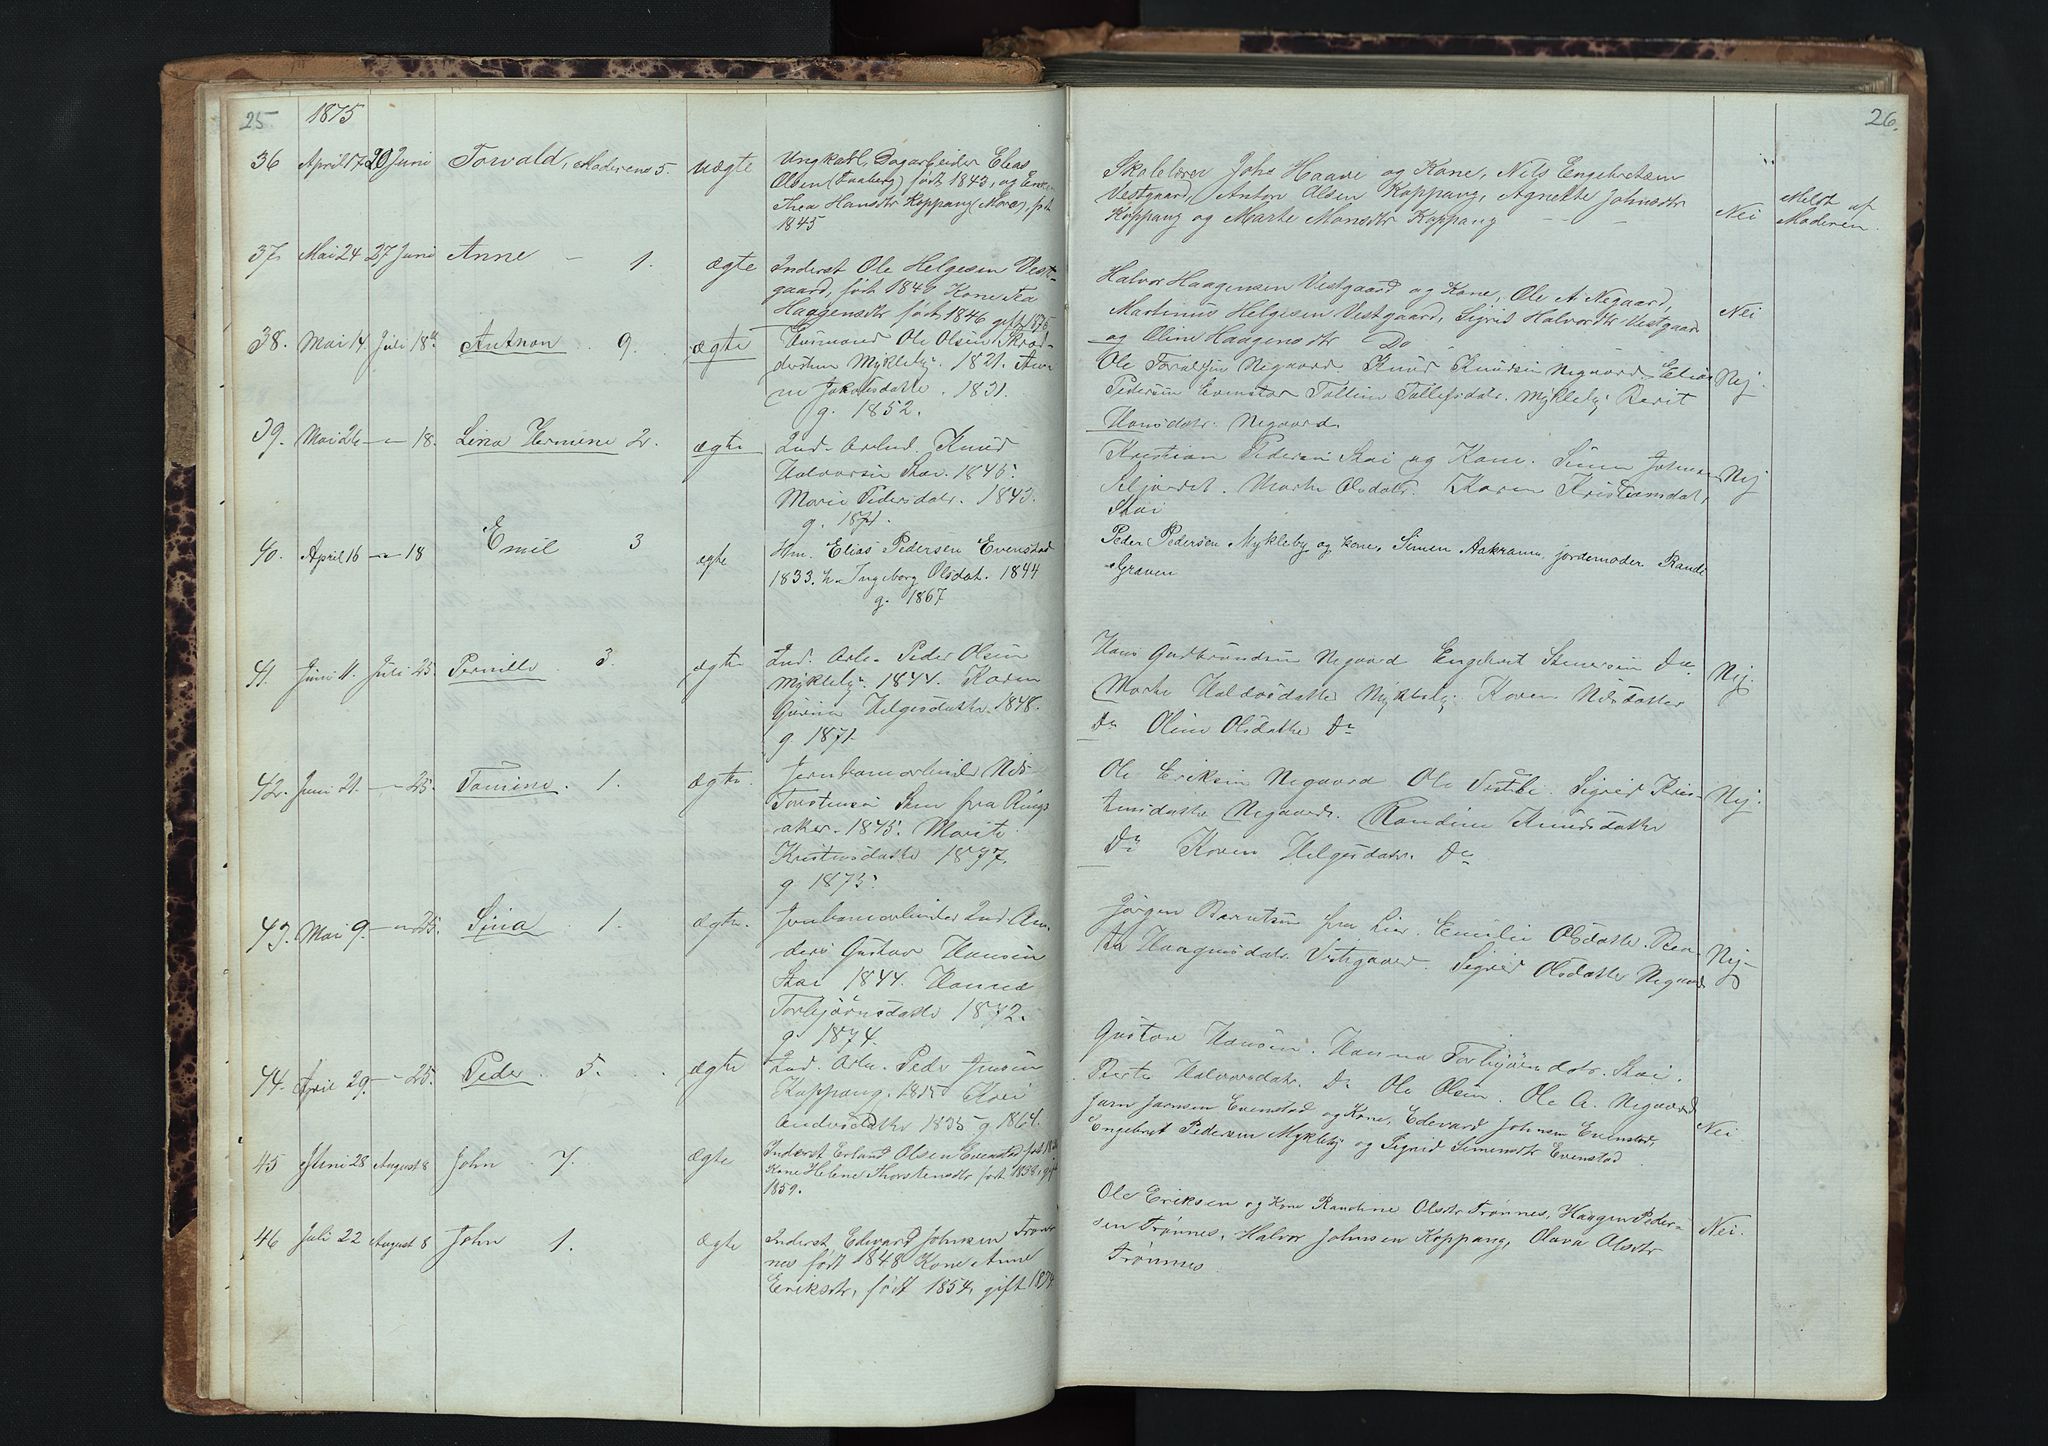 25.
1875
36 April 17 20 Juni Torvald, Moderens 5. uægte
Ungkarl, Dagarbeider Elias
Olsen (Faaberg) født 1843, og Enke
Thea Hansdtr Koppang (Moren), født
1845
37. Mai 24 27 Juni Anne - 1. ægte
Inderst Ole Helgesen Vest-
gaard, født 1840 Kone Eva
Haagensdtr født 1846 gift 1875
38. Mai 14 Juli 18de Anthon . 9. ægte
Huusmand Ole Olsen
Mykleby. 1821.
Jakobsdatter . 1831.
g. 1852.
39. Mai 26 -"- 18. Lina Hermine 2. ægte
Ind. Arbeid. Knud
Halvorsen Stai. 1845.
Marie Pedersdatr. 1843.
g. 1871.
40. April 16 -"- 18 Emil 3 ægte
Hm. Elias Pedersen Evenstad
1833. h. Ingeborg Olsdat. 1844
g. 1867
41. Juni 11. Juli 25. Pernille 3. ægte
Ind. Arb. Peder Olsen
Mykleby. 1844. Karen
Gurine Helgesdatter 1848.
g. 1871.
42. Juni 21. -"- 25. Tomine . 1. ægte.
Jernbanearbeider Nils
Torstensen fra Rings
aker. 1845. Marit
Kristensdatter
g. 1875.
43. Mai 9. -"- 25. Lina . 1. ægte.
Jernbanearbeider Ind. An-
ders Gustav Hansen
Stai 1844. Hanna
Torbjörnsdatter
g. 1874.
44. April 29. - 25. Peder . 5. . . ægte
Ind. Arb. Peder Jensen
Koppang. Kari
Andersdatter 1835 g. 1864.
45 Juni 28 August 8 John 7. ægte
Inderst Erland Olsen Evenstad født
Kone Helene Thorstensdtr født 1838, gift
1859.
46 Juli 22 August 8 John 1. ægte
Inderst Edevard Johnsen Trøn-
nes født 1848 Kone Anne
Eriksdtr, født 1854, gift 1874
26.
Skolelærer Johs Haave og Kone, Nils Engebretsen
Vestgaard, Anton Olsen Koppang, Agnethe Johnsdtr
Koppang og Marte Monsdtr Koppang - -
Nei
Meldt af
Moderen.
Halvor Haagensen Vestgaard og Kone, Ole A Negaard,
Martinus Helgesen Vestgaard, Sigrid Halvordtr Vestgaard
og Oline Haagensdtr Do
Nei
Ole Negaard. Knud Knudsen Negaard. Elias
Pedersen Evenstad Tolline Tollefsdatr. Mykleby Berit
Hansdatr. Negaard.
Nej.
Kristian Pedersen Stai og Kone. Simen Johnsen
Marthe Olsdatr. Karen Kristiansdat.
Stai
Nej
Peder Pedersen Mykleby og Kone, Simen Aakrann, jordemoder Randi
Graven
Hans Gudbrandsen Negaard Engebret Stenersen Do
Marte Halvorsdatter Mykleby Karen Nilsdatter
Do Oline Olsdatter Do
Nej.
Ole Eriksen Negaard Ole Sigrid Kris-
tensdatter Negaard. Randine Knudsdatter
Do Karen Helgesdatr. Do
Nej.
Jörgen Berntsen fra Lier. Emilie Olsdatter. Bea-
te Haagensdatr. Vestgaard. Sigrid Olsdatter Negaard
Nej.
Gustav Hansen. Hanna Torbjörnsdatr. Stai.
Berte Halvorsdatr. Do Ole Olsen. Ole A. Negaard
Jørn Jørnsen Evenstad og Kone, Edevard Johnsen Evenstad,
Engebret Pedersen Mykleby og Sigrid Simensdtr Evenstad
Nei.
Ole Eriksen og Kone Randine Olsdtr Trønnes, Haagen Peder-
sen Trønnes, Halvor Johnsen Koppang, Olava Olsdtr
Trønnes
Nei.